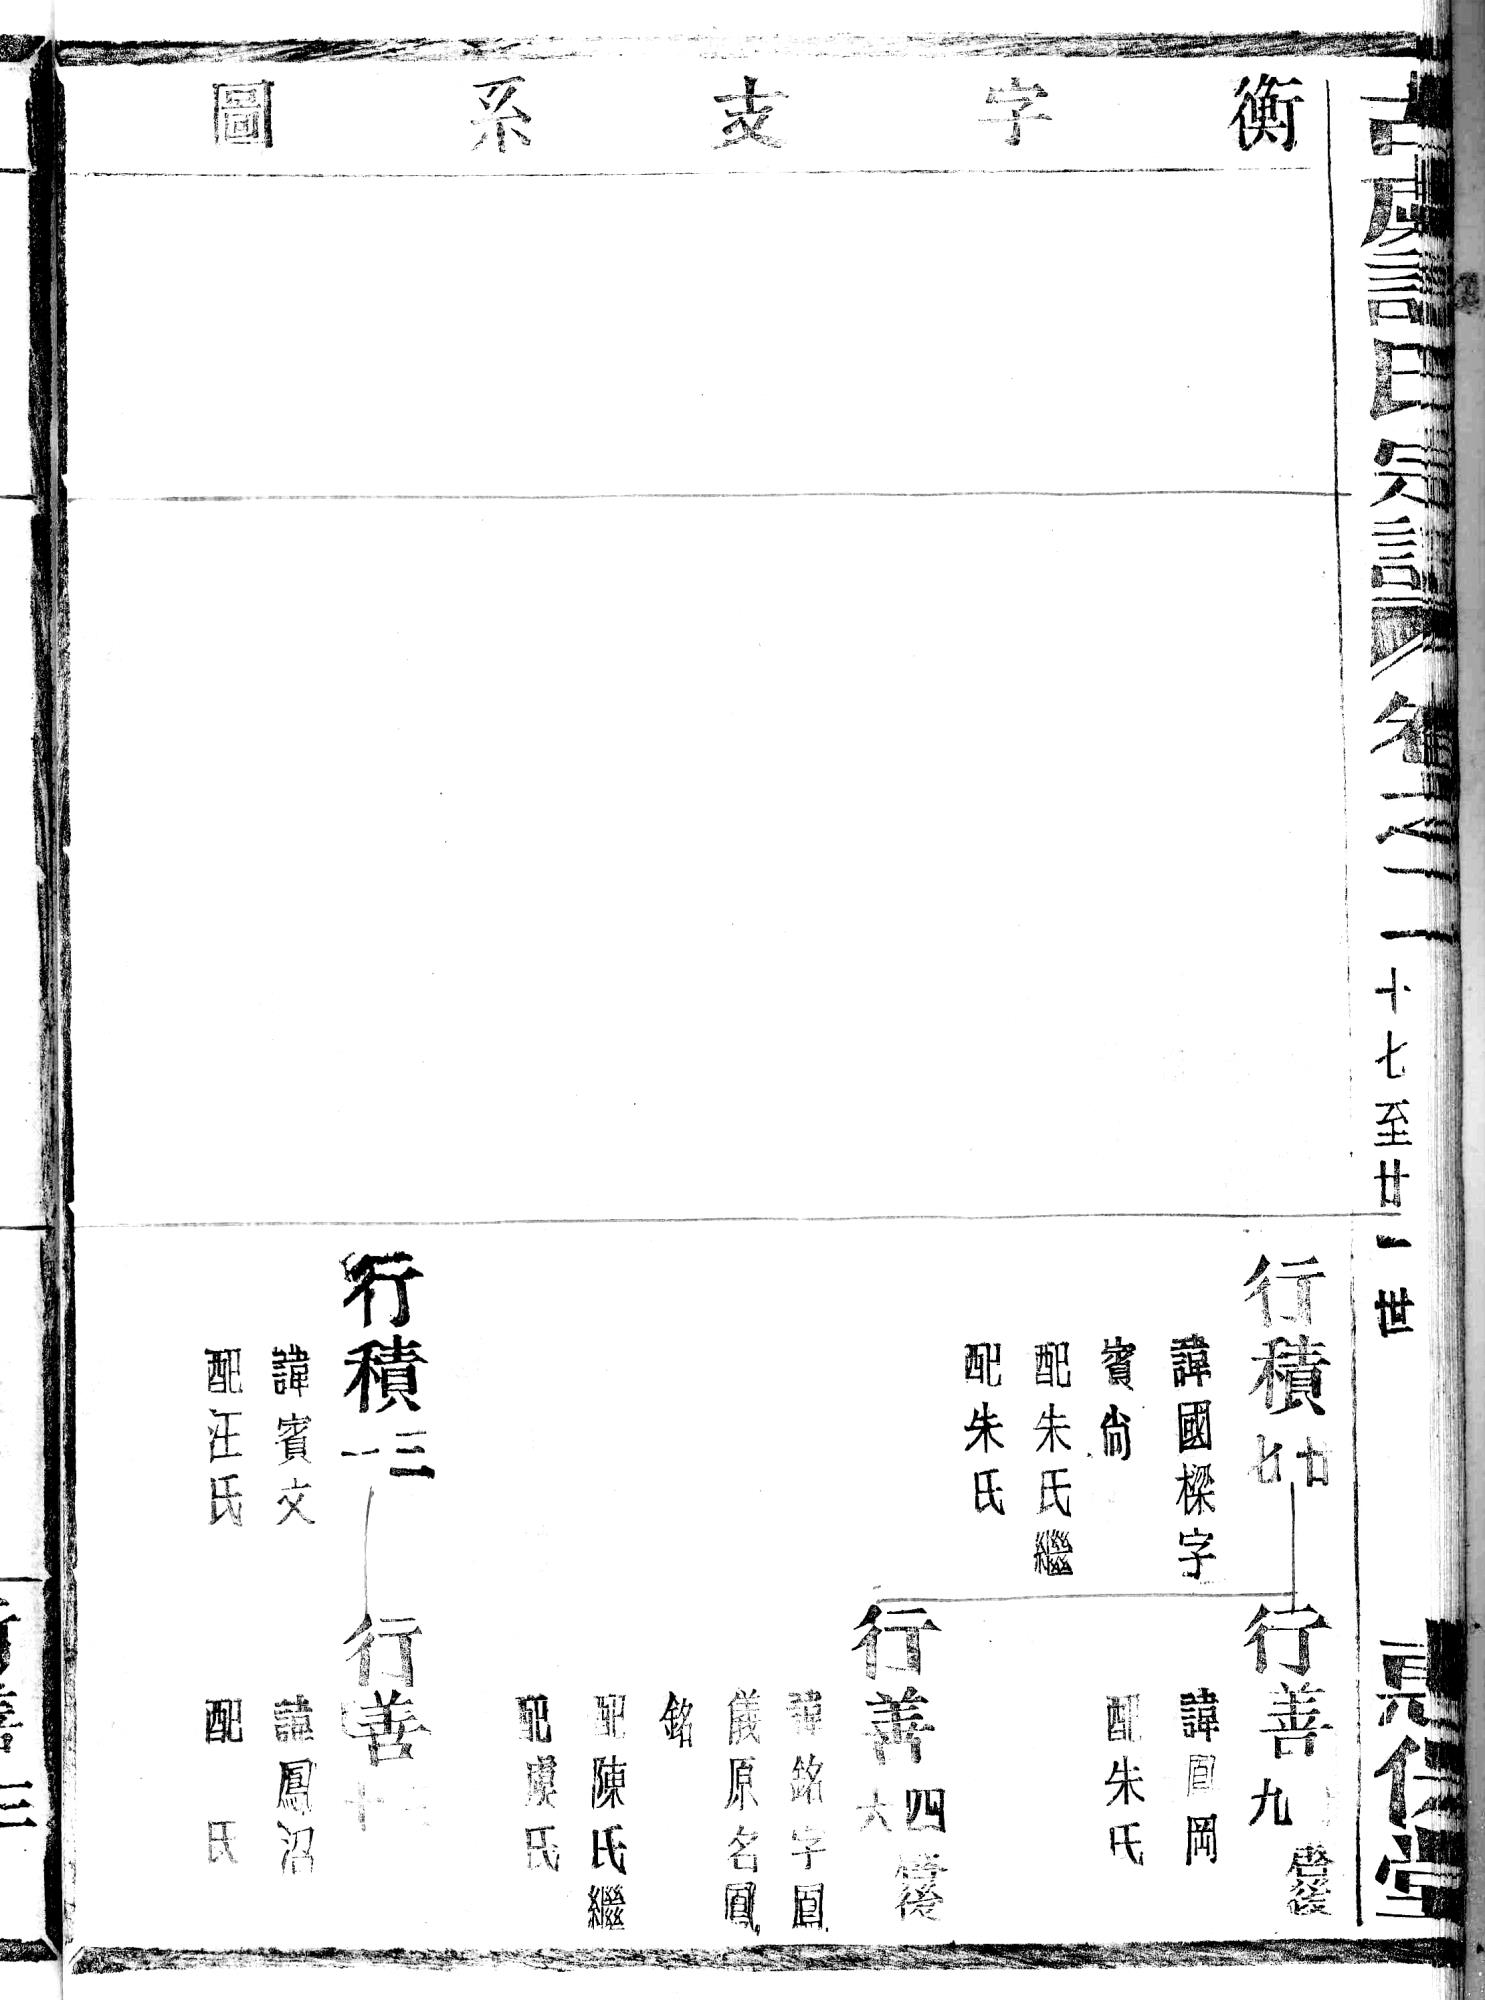 衡字支系圖
氏宗譜 卷之二 十七至廿一世
惠仁堂
行積廿七
諱國樑字
賓尙
配朱氏繼
配朱氏
行善九
啓後
諱岡
配朱氏
行善四六
啓後
諱銘字鳳
儀原名鳳
銘
配陳氏繼
配虞氏
行積三一
諱賓文
配汪氏
行善十
諱鳳沼
配 氏